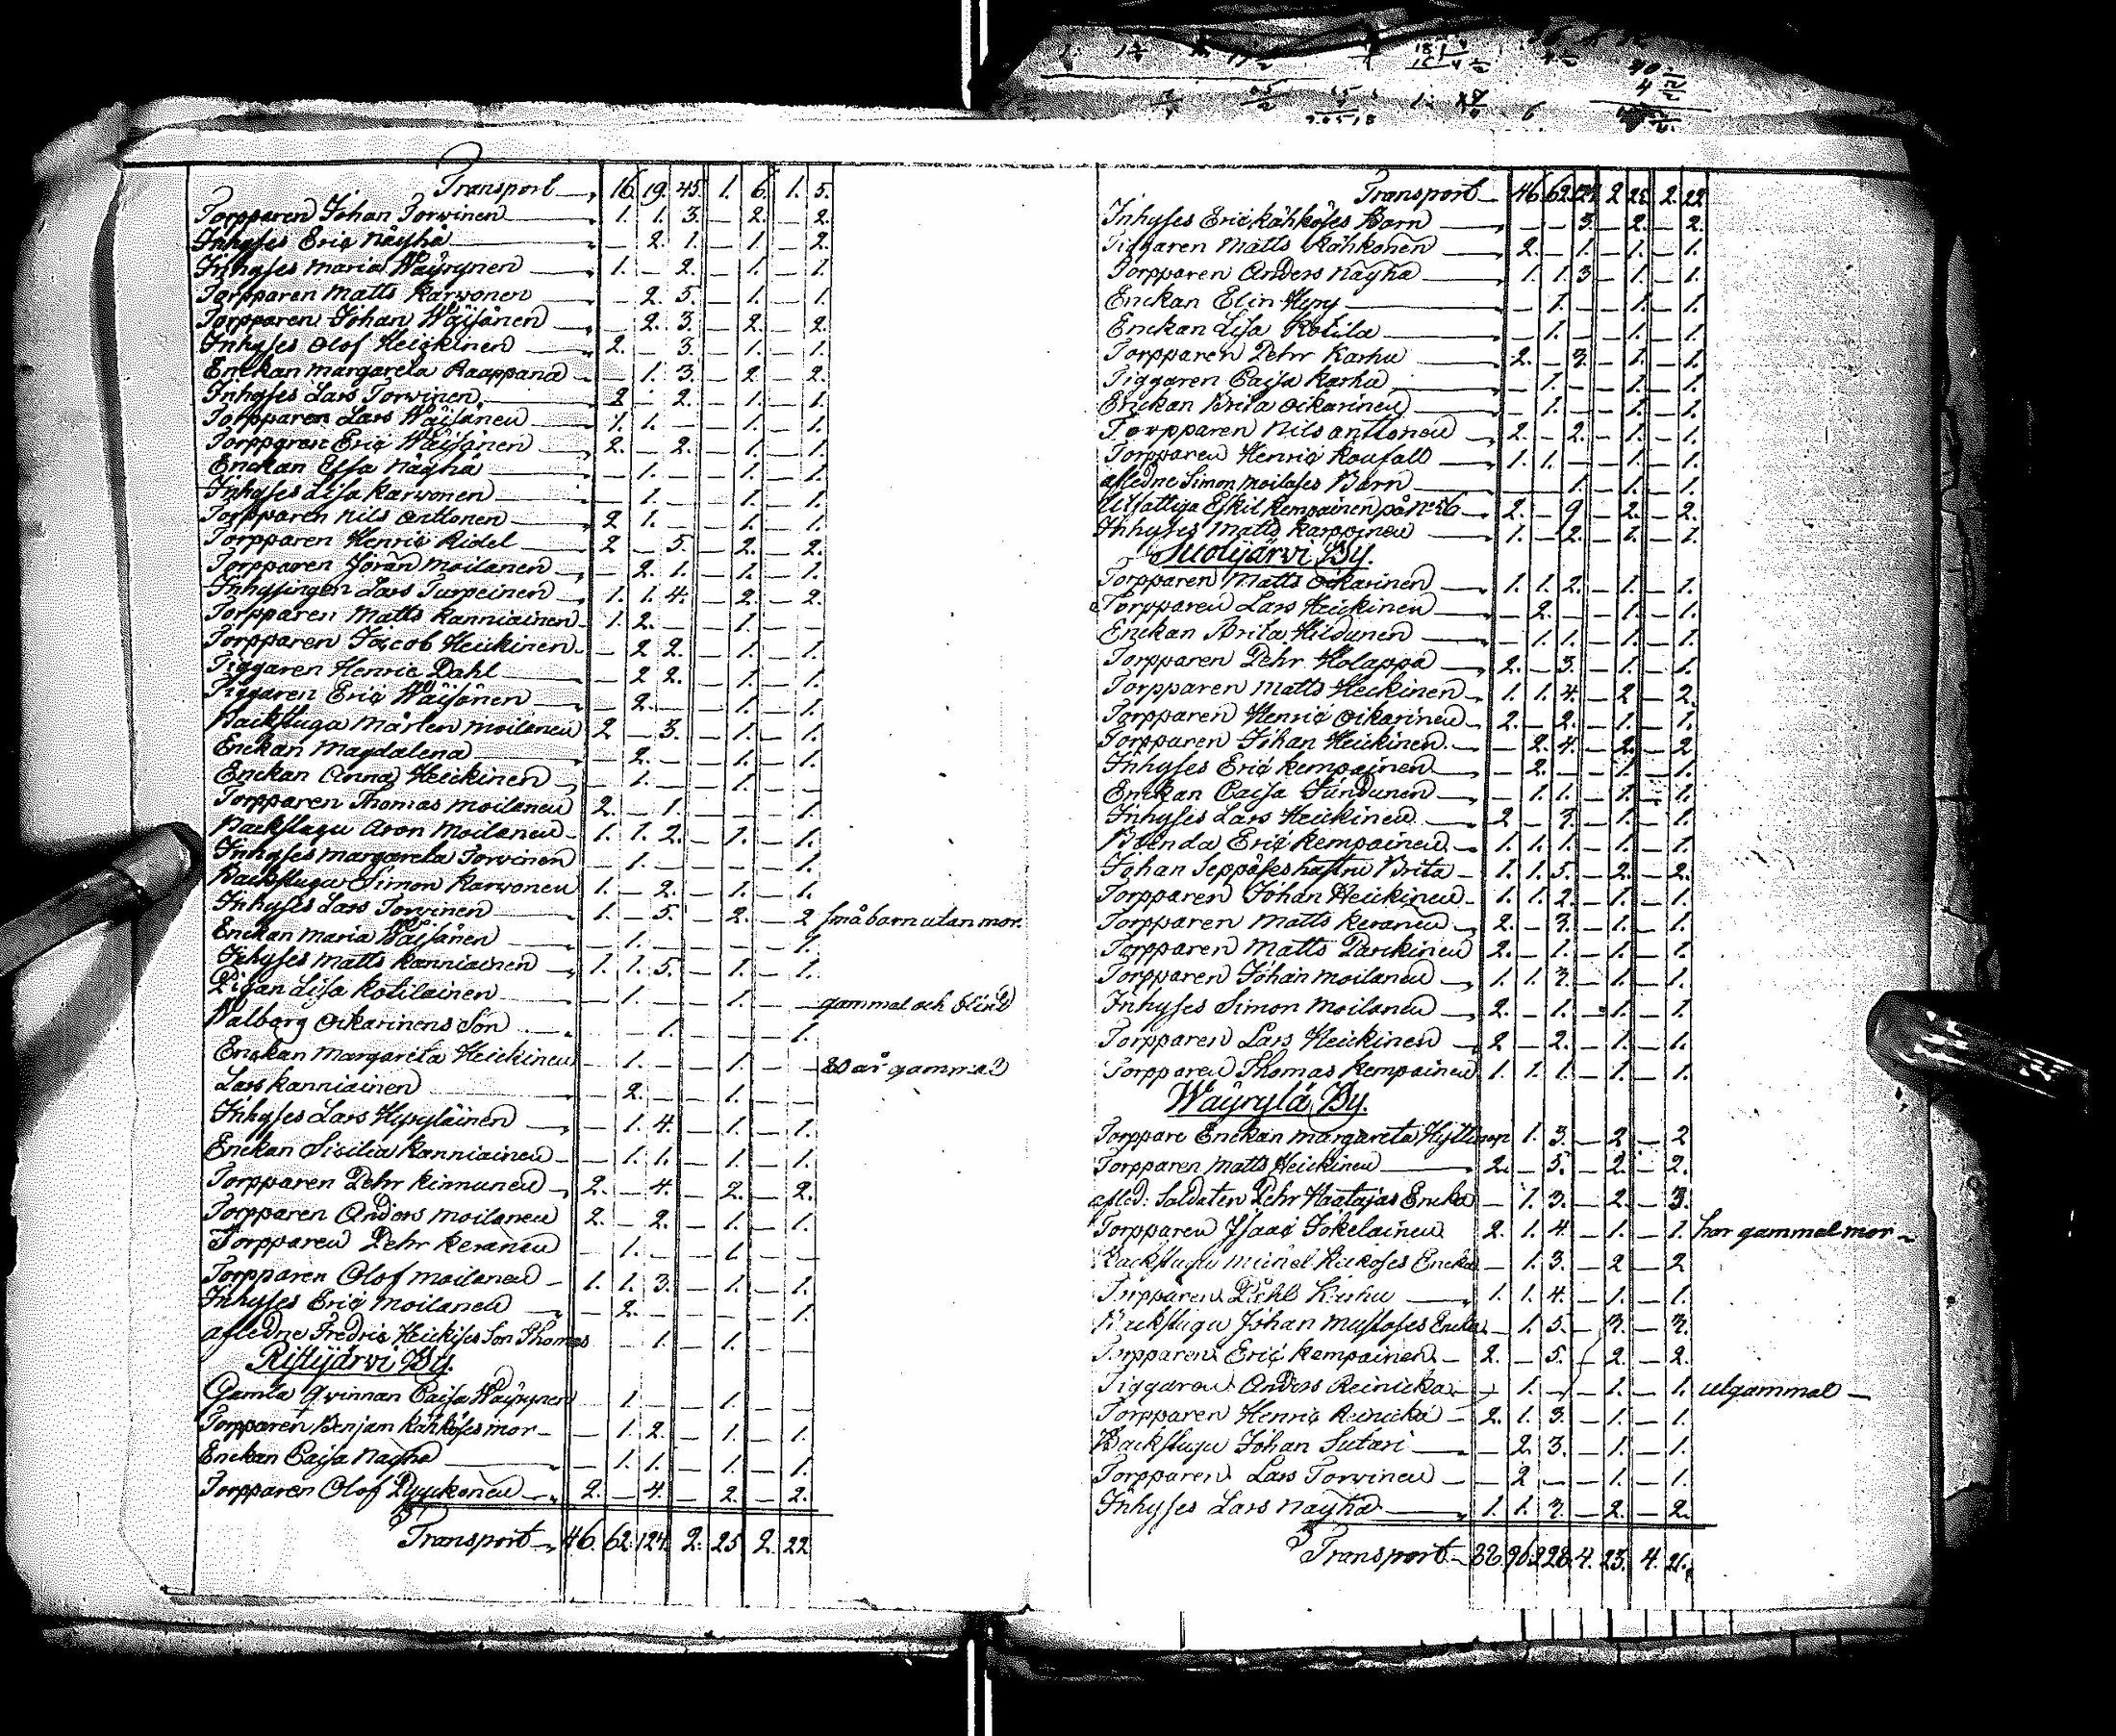 Transport 16. 19. 45. 1. 6. 1. 5.
Torpparen Johan Torvinen 1. 1. 3. — 2. — 2.
Inhyses Eric Näyhä — 2. 1. — 1. — 2.
Inhyses Maria Wäyrynen 1. — 2. — 1. — 1.
Torpparen Matts Karvonen — 2. 5. — 1. — 1.
Torpparen Johan Wäisänen — 2. 3. — 2. — 2.
Inhyses Olof Heickinen 2. — 3. — 1. — 1.
Enckan Margareta Raappana — 1. 3. — 2. — 2.
Inhyses Lars Torvinen 2 — 2. — 1. — 1.
Torpparen Lars Wäisänen 1. 1. — — 1. — 1.
Torpparen Eric Wäisänen 2. — 2. — 1. — 1.
Enckan Näyhä — 1. — — 1. — 1.
Inhyses Lisa Karvonen — 1. — — 1. — 1.
Torpparen Nils Anttonen 2 1. — — 1. — 1.
Torpparen Henric Ridel 2 — 5. — 2. — 2.
Torpparen Jöran Moilanen — 2. 1. — 1. — 1.
Inhysingen Lars Turpeinen 1. 1. 4. — 2. — 2.
Torpparen Matts Kanniainen 1. 2. — — 1. —
Torpparen Jacob Heickinen — 2 2. — 1. — 1.
Tiggaren Henric Dahl — 2 2. — 1. — 1.
Tiggaren Eric Wäisänen — 2. — — 1. — 1.
Backstuga Mårten Moilanen 2 — 3. — 1. — 1.
Enckan Magdalena — 2. — — 1. — 1.
Enckan Anna Heickinen — 1. — — 1. —
Torpparen Thomas Moilanen 2. — 1. — — — 1.
Backstugu Aron Moilanen 1. 1. 2. — 1. — 1.
Inhyses Margareta Torvinen — 1. — — — — 1.
Backstugu Simon Karvonen 1. — 2. — 1. — 1.
Inhyses Lars Torvinen 1. — 5. — 2. — 2 små barn utan mor.
Enckan Maria Wäisänen — 1. — — — — 1.
Inhyses Matts Kanniainen 1. 1. 5. — 1. — 1.
Pigan Lisa Kotilainen — 1. — — 1. — — gammal och blind
Walborg Oikarinens Son — — 1. — — — 1.
Enckan Margareta Heickinen — 1. — — 1. — — 80 år gammal
Lars Kanniainen — 2. — — 1. — —
Inhyses Lars Hyryläinen — 1. 4. — 1. — 1.
Enckan Sicilia Kanniainen — 1. 1. — 1. — 1.
Torpparen Pehr Kinnunen 2. — 4. — 2. — 2.
Torpparen Anders Moilanen 2. — 2. — 1. — 1.
Torpparen Pehr Keränen — 1. — — 1 — —
Torpparen Olof Moilanen 1. 1. 3. — 1. — 1.
Inhyses Eric Moilanen — 2. — — — — 1.
afledne Fredric Heickises Son Thomas — 1. — 1. —
Ristijärvi By.
Gamla qvinnan Caisa Wäyrynen 1. — 1. —
Torpparen Benjam Kähköses mor — 1. 2. — 1. — 1.
Enckan Caisa Näyhä — 1. 1. — 1. — 1.
Torpparen Olof Pyykönen 2. — 4. — 2. — 2.
Transport 46. 62. 124. 2. 25 2. 22
Transport 46. 62. 124. 2 25. 2. 22
Inhyses Eric Kähköses Barn — — 3. — 2. — 2.
Tiggaren Matts Kähkönen 2. — 1. — 1. — 1.
Torpparen Anders Näyhä 1. 1. 3 — 1. — 1.
Enckan Elin Hyry — 1. — — 1. — 1.
Enckan Lisa Kotila — 1. — — 1. — 1.
Torpparen Pehr Karhu 2. — 3. — 1. — 1.
Tiggaren Caisa Karhu — 1. — — 1. — 1.
Enckan Brita Oikarinen — 1. — — 1. — 1.
Torpparen Nils Anttonen 2. — 2. — 1. — 1.
Torpparen Henric 1. 1. — — 1. — 1.
afledne Simon Moilases Barn — — 1. — 1. — 1.
Utfattiga Eskil Kempainen på No 56 2. — 9. — 2. — 2.
Inhyses Matts Karppinen 1. — 2. — 1. — 1.
Suolijärvi By.
Torpparen Matts Oikarinen 1. 1. 2. — 1. — 1.
Torpparen Lars Heickinen — 2. — — 1. — 1.
Enckan Brita Hildunen — 1. 1. — 1. — 1.
Torpparen Pehr Holappa 2. — 3. — 1. — 1.
Torpparen Matts Heickinen 1. 1. 4. — 2 — 2.
Torpparen Henric Oikarinen 2. — 2. — 1. — 1.
Torpparen Johan Heickinen — 2. 4. — 2. — 2
Inhyses Eric Kempainen — 2. — — 1. — 1.
Enckan Caisa — 1. 1. — 1. — 1.
Inhyses Lars Heickinen 2 — 3. — 1. — 1.
Bonda Eric Kempainen 1. 1. 1. — 1. — 1.
Johan Seppäses hustru Brita 1. 1. 5. — 2. — 2.
Torpparen Johan Heickinen 1. 1. 2. — 1. — 1.
Torpparen Matts Keränen 2. — 3. — 1. — 1.
Torpparen Matts Parckinen 2. — 1. — 1. — 1.
Torpparen Johan Moilanen 1. 1. 3. — 1. — 1.
Inhyses Simon Moilanen 2. — 1. — 1. — 1.
Torpparen Lars Heickinen 2 — 2. — 1. — 1.
Torpparen Thomas Kempainen 1. 1. 1. — 1. — 1.
Wäyrylä By.
Torppare Enckan Margareta Hyttinen 1. 3. — 2 — 2
Torpparen Matts Heickinen 2. — 5. — 2. — 2.
afled. Soldaten Pehr Haatajas Encka — 1. 3. — 2. — 3.
Torpparen Isaac Jokelainen 2. 1. 4. — 1. — 1. har gammal mor
Backstugu Michel Encka — 1. 3. — 2 — 2
Torpparen Karhu 1. 1. 4. — 1. — 1.
Backstugu Johan Mustoses Encka — 1. 5. — 3. — 3.
Torpparen Eric Kempainen 2. — 5. — 2. — 2.
Tiggaren Anders Reinicka — 1. — — 1. — 1. utgammal
Torpparen Henric Reinicka 2. 1. 3. — 1. — 1.
Backstugu Johan Sutari — 2. 3. — 1. — 1.
Torpparen Lars Torvinen — 2 — — 1. — 1.
Inhyses Lars Näyhä 1. 1. 3. — 2. — 2.
Transport 4. 23. 4.